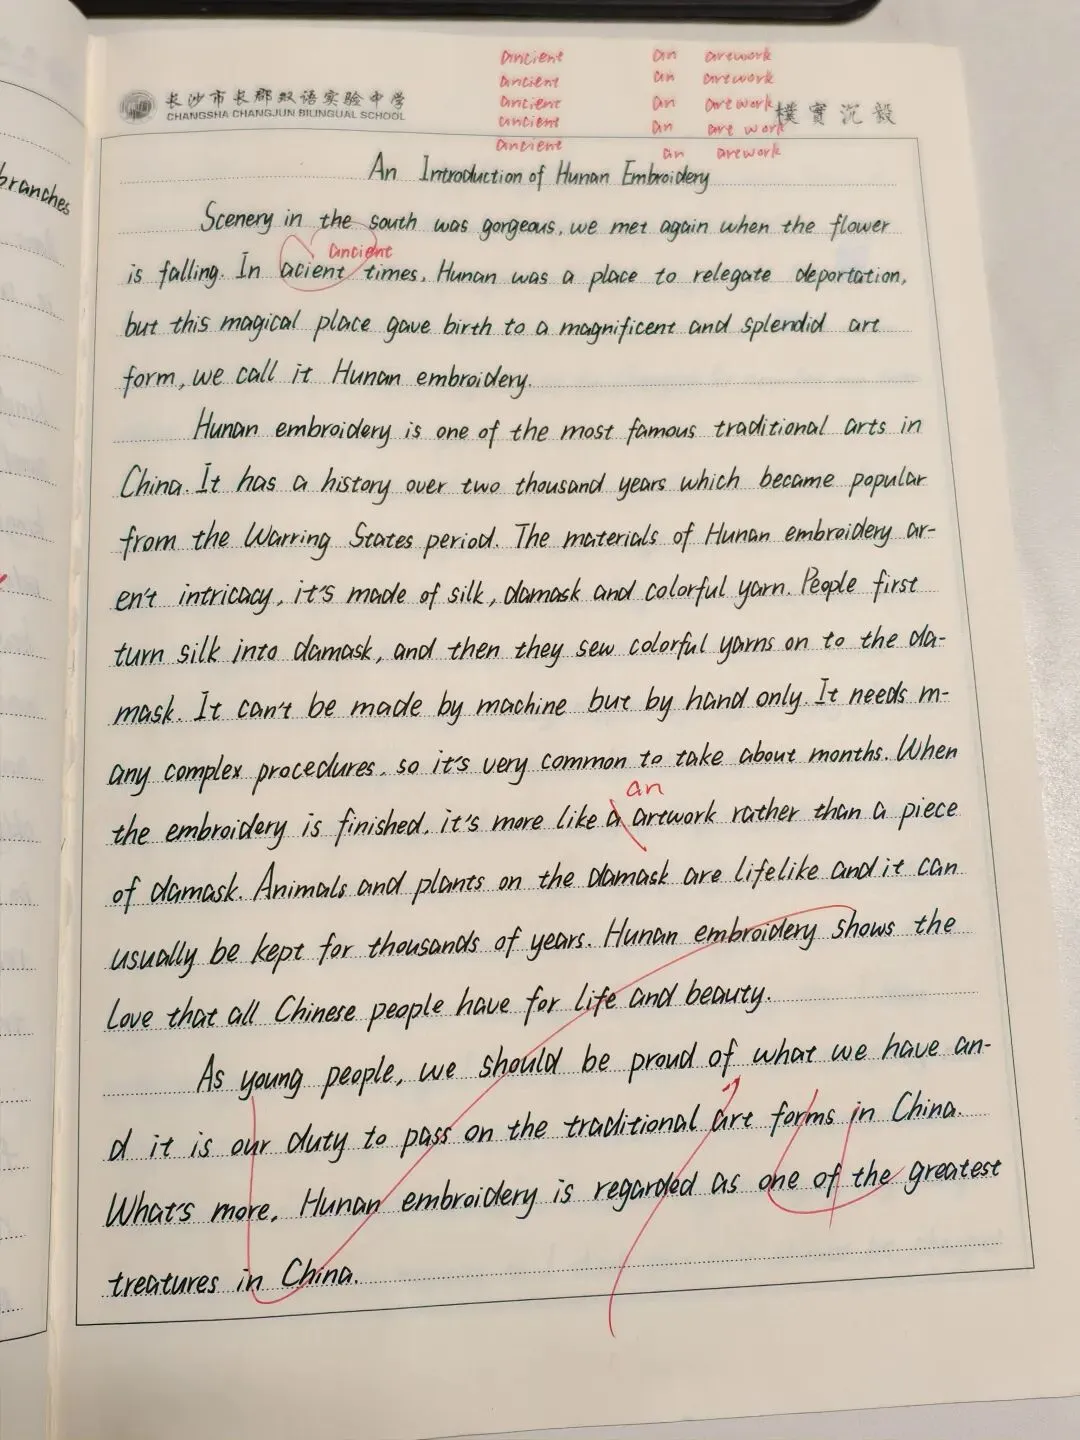 branches
ancient an artwork
ancient an artwork
ancient an artwork
ancient an art work
ancient an artwork
长沙市长郡双语实验中学
CHANGSHA CHANGJUN BILINGUAL SCHOOL
樸實沉毅
An Introduction of Hunan Embroidery
Scenery in the south was gorgeous, we met again when the flower
ancient
is falling. In acient times, Hunan was a place to relegate deportation,
but this magical place gave birth to a magnificent and splendid art
form, we call it Hunan embroidery.
Hunan embroidery is one of the most famous traditional arts in
China. It has a history over two thousand years which became popular
from the Warring States period. The materials of Hunan embroidery ar-
en't intricacy, it's made of silk, damask and colorful yarn. People first
turn silk into damask, and then they sew colorful yarns on to the da-
mask. It can't be made by machine but by hand only. It needs m-
any complex procedures, so it's very common to take about months. When
an
the embroidery is finished, it's more like a artwork rather than a piece
of damask. Animals and plants on the damask are lifelike and it can
usually be kept for thousands of years. Hunan embroidery shows the
love that all Chinese people have for life and beauty.
As young people, we should be proud of what we have an-
d it is our duty to pass on the traditional art forms in China.
What's more, Hunan embroidery is regarded as one of the greatest
treatures in China.